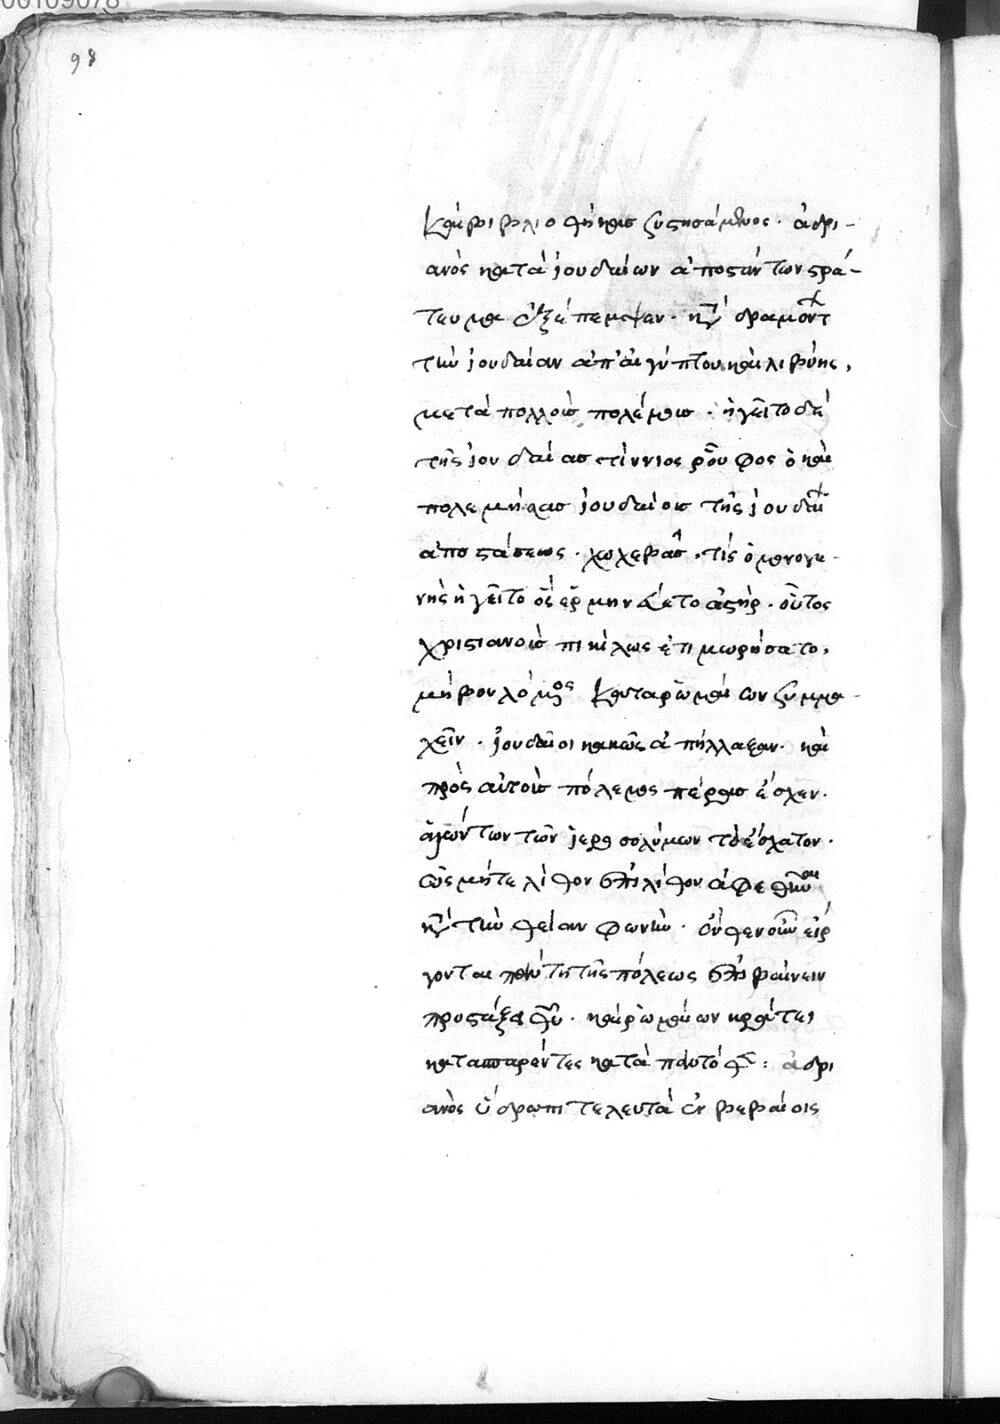 00109078
98
καὶ βιβλιοθήκας συστησάμενος· ἀδρι-
ανὸς κατὰ ἰουδαίων ἀποστάντων στρά-
τευμα ἐξέπεμψεν· κατὰ δραμόντων
τὴν ἰουδαίαν ἀπ' αἰγύπτου καὶ λιβύης,
μετὰ πολλοὺς πολέμους· ἡγεῖτο δὲ
τῆς ἰουδαίας τίννιος ροῦφος ὁ καὶ
πολεμήσας ἰουδαίοις τῆς ἰουδαίων
ἀποστάσεως· χωχεβᾶς τίς ὁ μονογε-
νὴς ἡγεῖτο ὃς ἑρμηνεύετο ἀστήρ· οὗτος
χριστιανοὺς ποικίλως ἐτιμωρήσατο,
μὴ βουλομένους κατὰ ῥωμαίων συμμα-
χεῖν· ἰουδαῖοι κακῶς ἀπήλλαξαν· καὶ
πρὸς αὐτοὺς πόλεμος πέρας ἔσχεν·
ἁλόντων τῶν ἱεροσολύμων τὸ ἔσχατον·
ὡς μήτε λίθον ἐπὶ λίθον ἀφεθῆναι
κατὰ τὴν θείαν φωνήν· ἔνθεν οὖν εἴρ
γονται πάντη τῆς πόλεως ἐπιβαίνειν
προστάξει θεοῦ· καὶ ῥωμαίων κράτει
κατασπαρέντες κατὰ παντὸς
ἀδρι
ανὸς ὑδρωπι τελευτᾶ ἐν βεβαίοις